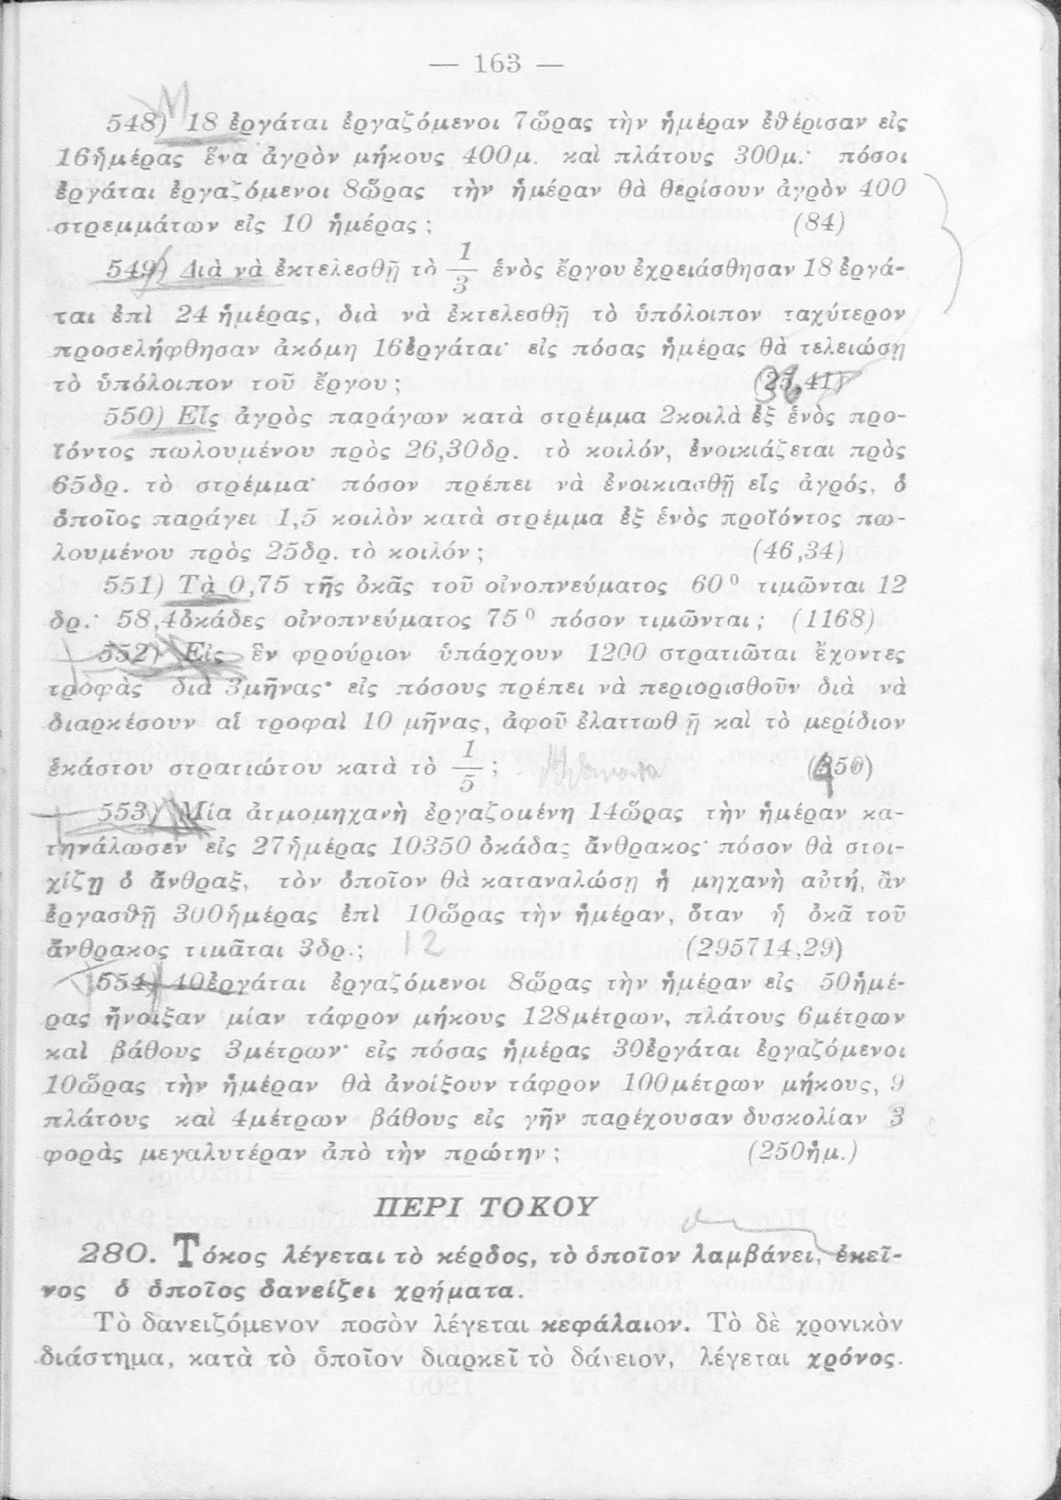 — 163 —
548) 18 ἐργάται ἐργαζόμενοι 7ὥρας τὴν ἡμέραν ἐθέρισαν εἰς
16ἡμέρας ἕνα ἀγρὸν μήκους 400μ. καὶ πλάτους 300μ.· πόσοι
ἐργάται ἐργαζόμενοι 8ὥρας τὴν ἡμέραν θὰ θερίσουν ἀγρὸν 400
στρεμμάτων εἰς 10 ἡμέρας; (84)
549) Διὰ νὰ ἐκτελεσθῇ τὸ 1/3 ἑνὸς ἔργου ἐχρειάσθησαν 18 ἐργά-
ται ἐπὶ 24 ἡμέρας, διὰ νὰ ἐκτελεσθῇ τὸ ὑπόλοιπον ταχύτερον
προσελήφθησαν ἀκόμη 16ἐργάται· εἰς πόσας ἡμέρας θὰ τελειώσῃ
τὸ ὑπόλοιπον τοῦ ἔργου; (25,41)
550) Εἷς ἀγρὸς παράγων κατὰ στρέμμα 2κοιλὰ ἐξ ἑνὸς προ-
ϊόντος πωλουμένου πρὸς 26,30δρ. τὸ κοιλόν, ἐνοικιάζεται πρὸς
65δρ. τὸ στρέμμα· πόσον πρέπει νὰ ἐνοικιασθῇ εἷς ἀγρός, ὁ
ὁποῖος παράγει 1,5 κοιλὸν κατὰ στρέμμα ἐξ ἑνὸς προϊόντος πω-
λουμένου πρὸς 25δρ. τὸ κοιλόν; (46,34)
551) Τὰ 0,75 τῆς ὀκᾶς τοῦ οἰνοπνεύματος 60⁰ τιμῶνται 12
δρ.· 58,4ὀκάδες οἰνοπνεύματος 75⁰ πόσον τιμῶνται; (1168)
552) Εἰς ἓν φρούριον ὑπάρχουν 1200 στρατιῶται ἔχοντες
τροφὰς διὰ 3μῆνας· εἰς πόσους πρέπει νὰ περιορισθοῦν διὰ νὰ
διαρκέσουν αἱ τροφαὶ 10 μῆνας, ἀφοῦ ἐλαττωθῇ καὶ τὸ μερίδιον
ἑκάστου στρατιώτου κατὰ τὸ 1/5; (450)
553) Μία ἀτμομηχανὴ ἐργαζομένη 14ὥρας τὴν ἡμέραν κα-
τηνάλωσεν εἰς 27ἡμέρας 10350 ὀκάδας ἄνθρακος· πόσον θὰ στοι-
χίζῃ ὁ ἄνθραξ, τὸν ὁποῖον θὰ καταναλώσῃ ἡ μηχανὴ αὐτή, ἂν
ἐργασθῇ 300ἡμέρας ἐπὶ 10ὥρας τὴν ἡμέραν, ὅταν ἡ ὀκᾶ τοῦ
ἄνθρακος τιμᾶται 3δρ.; 12 (295714,29)
554) 40ἐργάται ἐργαζόμενοι 8ὥρας τὴν ἡμέραν εἰς 50ἡμέ-
ρας ἤνοιξαν μίαν τάφρον μήκους 128μέτρων, πλάτους 6μέτρων
καὶ βάθους 3μέτρων· εἰς πόσας ἡμέρας 30ἐργάται ἐργαζόμενοι
10ὥρας τὴν ἡμέραν θὰ ἀνοίξουν τάφρον 100μέτρων μήκους, 9
πλάτους καὶ 4μέτρων βάθους εἰς γῆν παρέχουσαν δυσκολίαν 3
φορὰς μεγαλυτέραν ἀπὸ τὴν πρώτην; (250ἡμ.)
ΠΕΡΙ ΤΟΚΟΥ
280. Τόκος λέγεται τὸ κέρδος, τὸ ὁποῖον λαμβάνει, ἐκεῖ-
νος ὁ ὁποῖος δανείζει χρήματα.
Τὸ δανειζόμενον ποσὸν λέγεται κεφάλαιον. Τὸ δὲ χρονικὸν
διάστημα, κατὰ τὸ ὁποῖον διαρκεῖ τὸ δάνειον, λέγεται χρόνος.